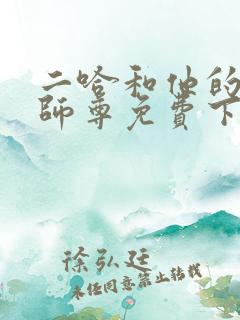 二哈和他的
師尊免費下
徐弘廷
未经同意禁止转载